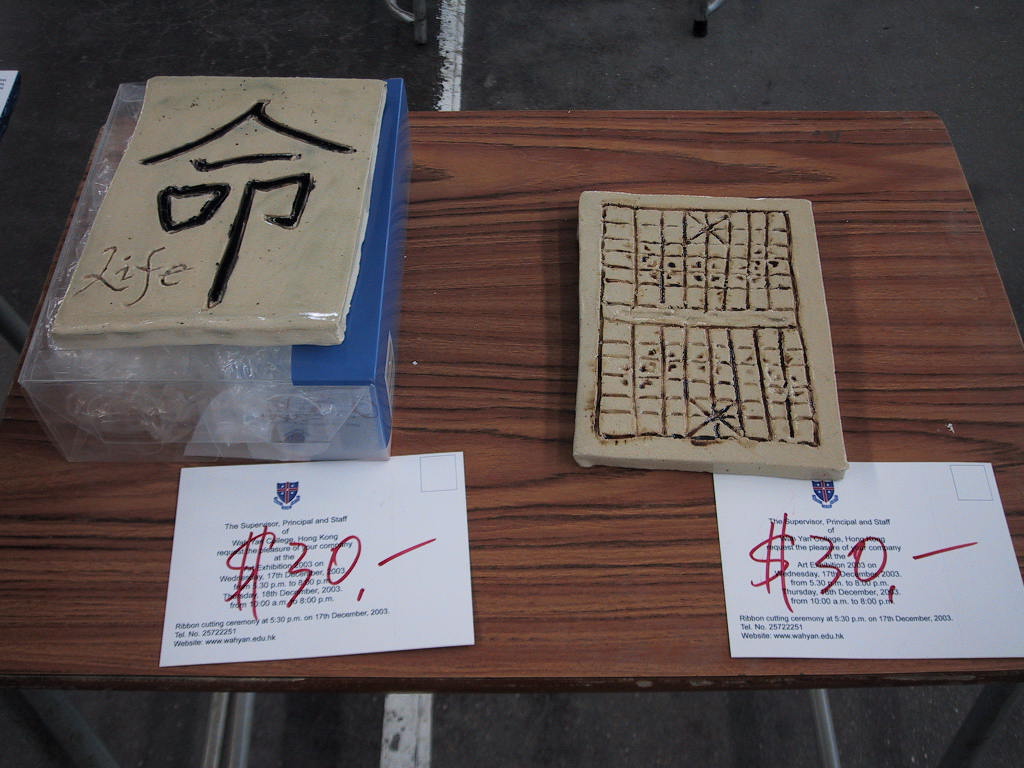 命
Life
The Supervisor, Principal and Staff
of
Wah Yan College, Hong Kong
request the pleasure of your company
at the
Art Exhibition 2003 on
Wednesday, 17th December, 2003
from 5.30 p.m. to 8:00 p.m.
Thursday, 18th December, 2003
from 10:00 a.m. to 8:00 p.m.
$30.—
Ribbon cutting ceremony at 5:30 p.m. on 17th December, 2003.
Tel. No. 25722251
Website: www.wahyan.edu.hk
The Supervisor, Principal and Staff
of
Wah Yan College, Hong Kong
request the pleasure of your company
at the
Art Exhibition 2003 on
Wednesday, 17th December, 2003
from 5.30 p.m. to 8:00 p.m.
Thursday, 18th December, 2003.
from 10:00 a.m. to 8:00 p.m.
$30.—
Ribbon cutting ceremony at 5:30 p.m. on 17th December, 2003.
Tel. No. 25722251
Website: www.wahyan.edu.hk